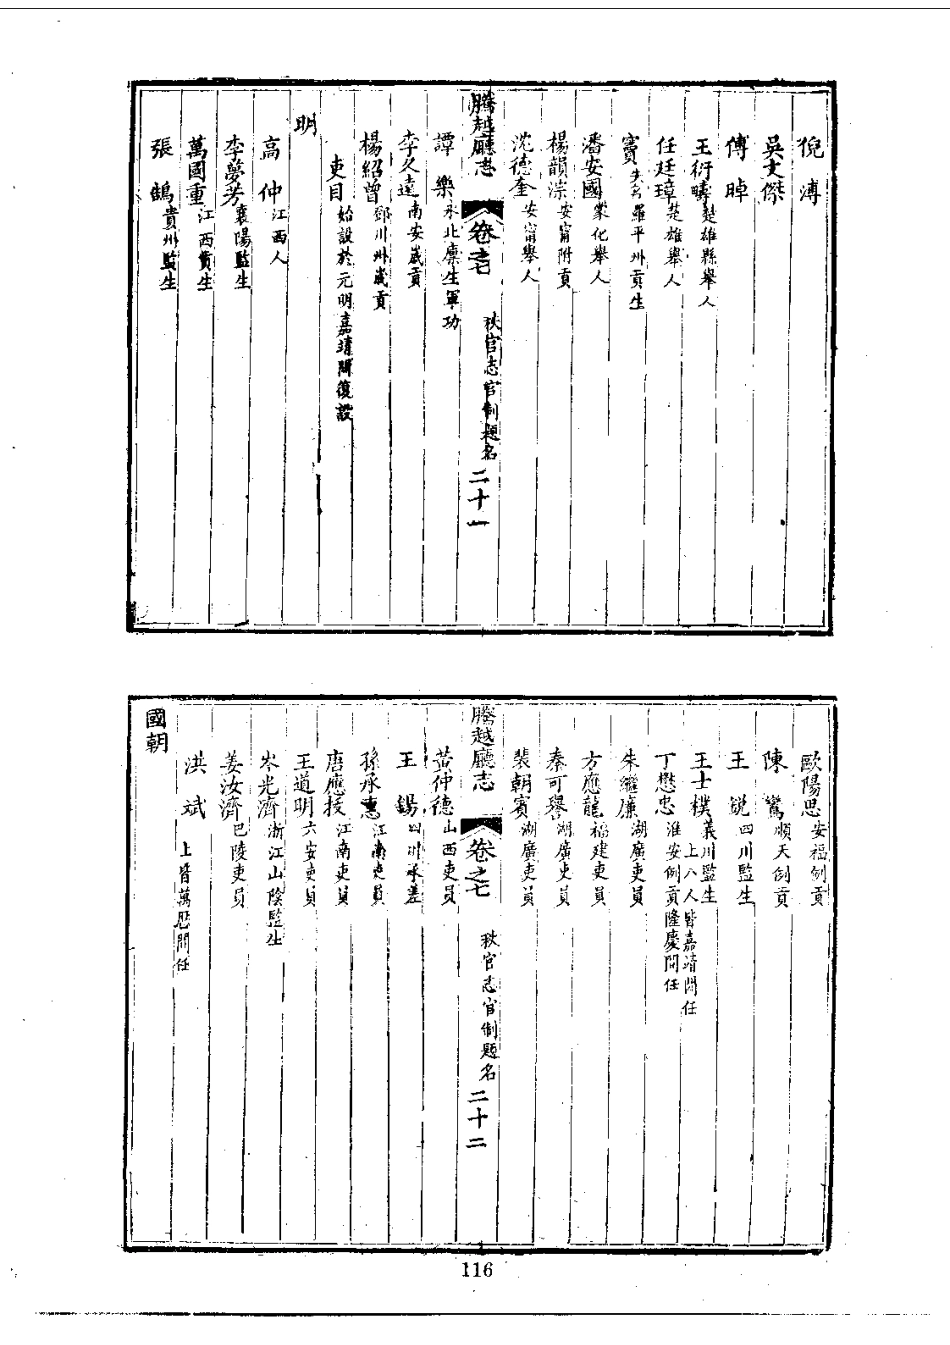 倪溥
吳文傑
傅晫
王衍疇楚雄縣舉人
任廷璋楚雄舉人
竇失名羅平州貢生
潘安國蒙化舉人
楊韻淙安甯附貢
沈德奎安甯舉人
騰越廳志 卷之七 秩官志官制題名 二十一
譚樂永北廩生軍功
李久遠南安歲貢
楊紹曾鄧川州歲貢
吏目始設於元明嘉靖間復設
明
高仲江西人
李夢芳襄陽監生
萬國重江西貢生
張鶴貴州監生
歐陽思安福例貢
陳鸑順天例貢
王銳四川監生
王士樸義川監生上八人皆嘉靖間任
丁懋忠淮安例貢隆慶間任
朱繼廉湖廣吏員
方應龍福建吏員
秦可譽湖廣吏員
裴朝賓湖廣吏員
騰越廳志 卷之七 秩官志官制題名 二十二
苗仲德山西吏員
王錫四川承差
孫承惠江南吏員
唐應授江南吏員
王道明六安吏員
岑光濟浙江山陰監生
姜汝濟巴陵吏員
洪斌上皆萬厯間任
國朝
116